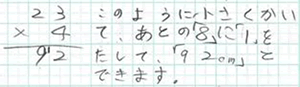 23 このように小さくかい
×4 て、あとの「8」に「1」を
92 たして、「92cm」と
できます。